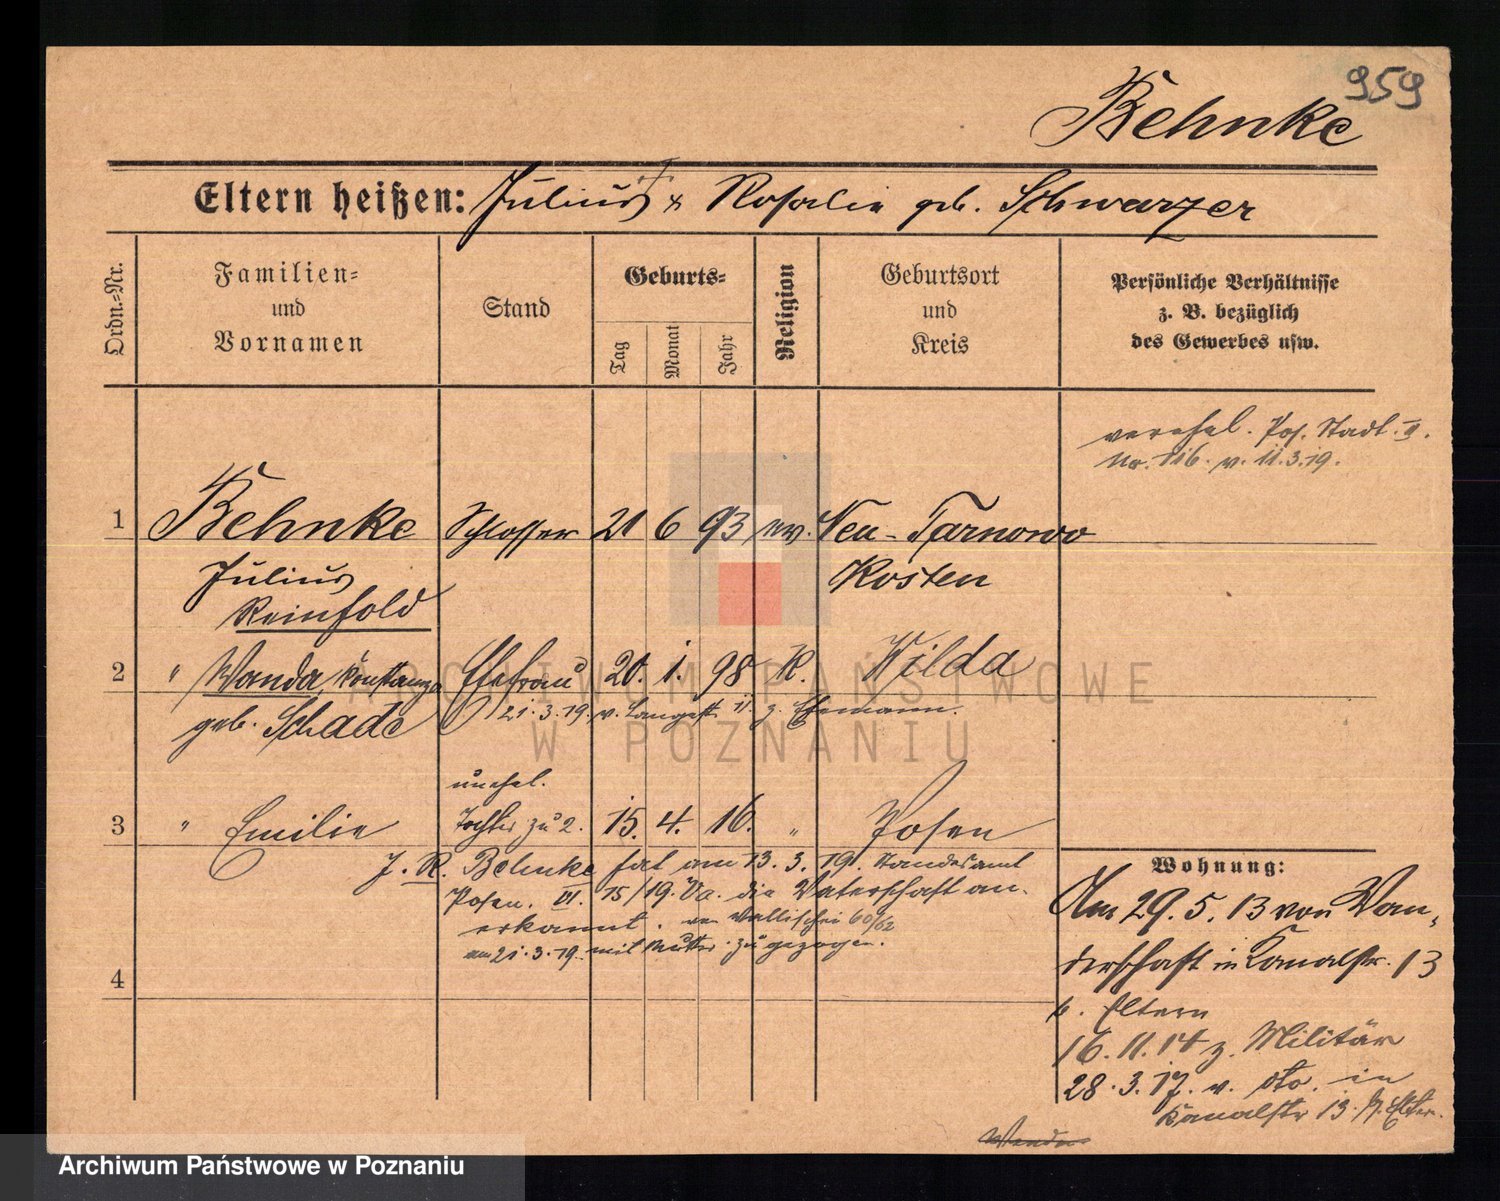 959
Behnke
Eltern heißen: Julius & Rosalie geb. Schwarzer
Ordn.-Nr.
Familien-
und
Vornamen
Stand
Geburts-
Tag
Monat
Jahr
Religion
Geburtsort
und
Kreis
Persönliche Verhältnisse
z. B. bezüglich
des Gewerbes usw.
verehel. Pos. Stadt. II.
Nr. 116. v. 11.3.19.
1 Behnke Schlosser 21 6 93 ev. Neu-Tarnowo
Julius Kosten
Reinhold
2 " Wanda Konstanze Ehefrau 20. 1. 98 K. Wilda
geb. Schade 21.3.19. v. Langestr. 11 z. Ehemann.
unehel.
3 " Emilie Tochter zu 2. 15. 4. 16. " Posen
J. R. Behnke hat am 13. 3. 19. Standesamt
Posen. VI. 15/19. die Vaterschaft an-
erkannt. von Wallischei 60/62
am 21.3.19. mit Mutter zugezogen.
4
Wohnung:
Am 29.5.13 von Wan-
derschaft in Kanalstr. 13
b. Eltern
16.11.14 z. Militär
28.3.17. v. dto. in
Kanalstr 13. b. Elter.
Wenden
ARCHIWUM PAŃSTWOWE
W POZNANIU
Archiwum Państwowe w Poznaniu